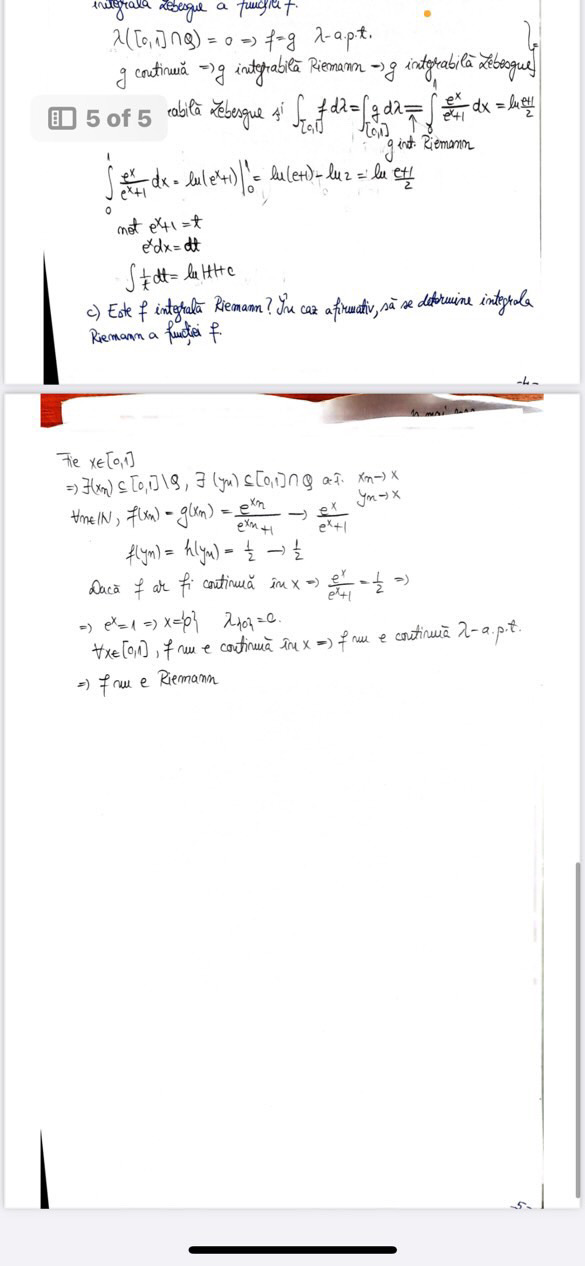 integrala Lebesgue a funcției f.
λ([0,1]∩Q) = 0 => f=g λ-a.p.t.
g continuă => g integrabilă Riemann => g integrabilă Lebesgue
5 of 5
rabilă Lebesgue și ∫[0,1] f dλ = ∫[0,1] g dλ = ∫₀¹ eˣ/(eˣ+1) dx = ln (e+1)/2
↑
g int. Riemann
∫₀¹ eˣ/(eˣ+1) dx = ln(eˣ+1)|₀¹ = ln(e+1) - ln 2 = ln (e+1)/2
not eˣ+1 = t
eˣdx = dt
∫ 1/t dt = ln|t|+c
c) Este f integrală Riemann? În caz afirmativ, să se determine integrala
Riemann a funcției f.
-4-
Fie x∈[0,1]
=> ∃(xn) ⊆ [0,1]\Q, ∃(yn) ⊆ [0,1]∩Q a.î. xn -> x
yn -> x
∀n∈ℕ, f(xn) = g(xn) = e^xn/(e^xn+1) -> eˣ/(eˣ+1)
f(yn) = h(yn) = 1/2 -> 1/2
Dacă f ar fi continuă în x => eˣ/(eˣ+1) = 1/2 =>
=> eˣ=1 => x={0} λ{0}=0.
∀x∈[0,1], f nu e continuă în x => f nu e continuă λ-a.p.t.
=> f nu e Riemann
-5-